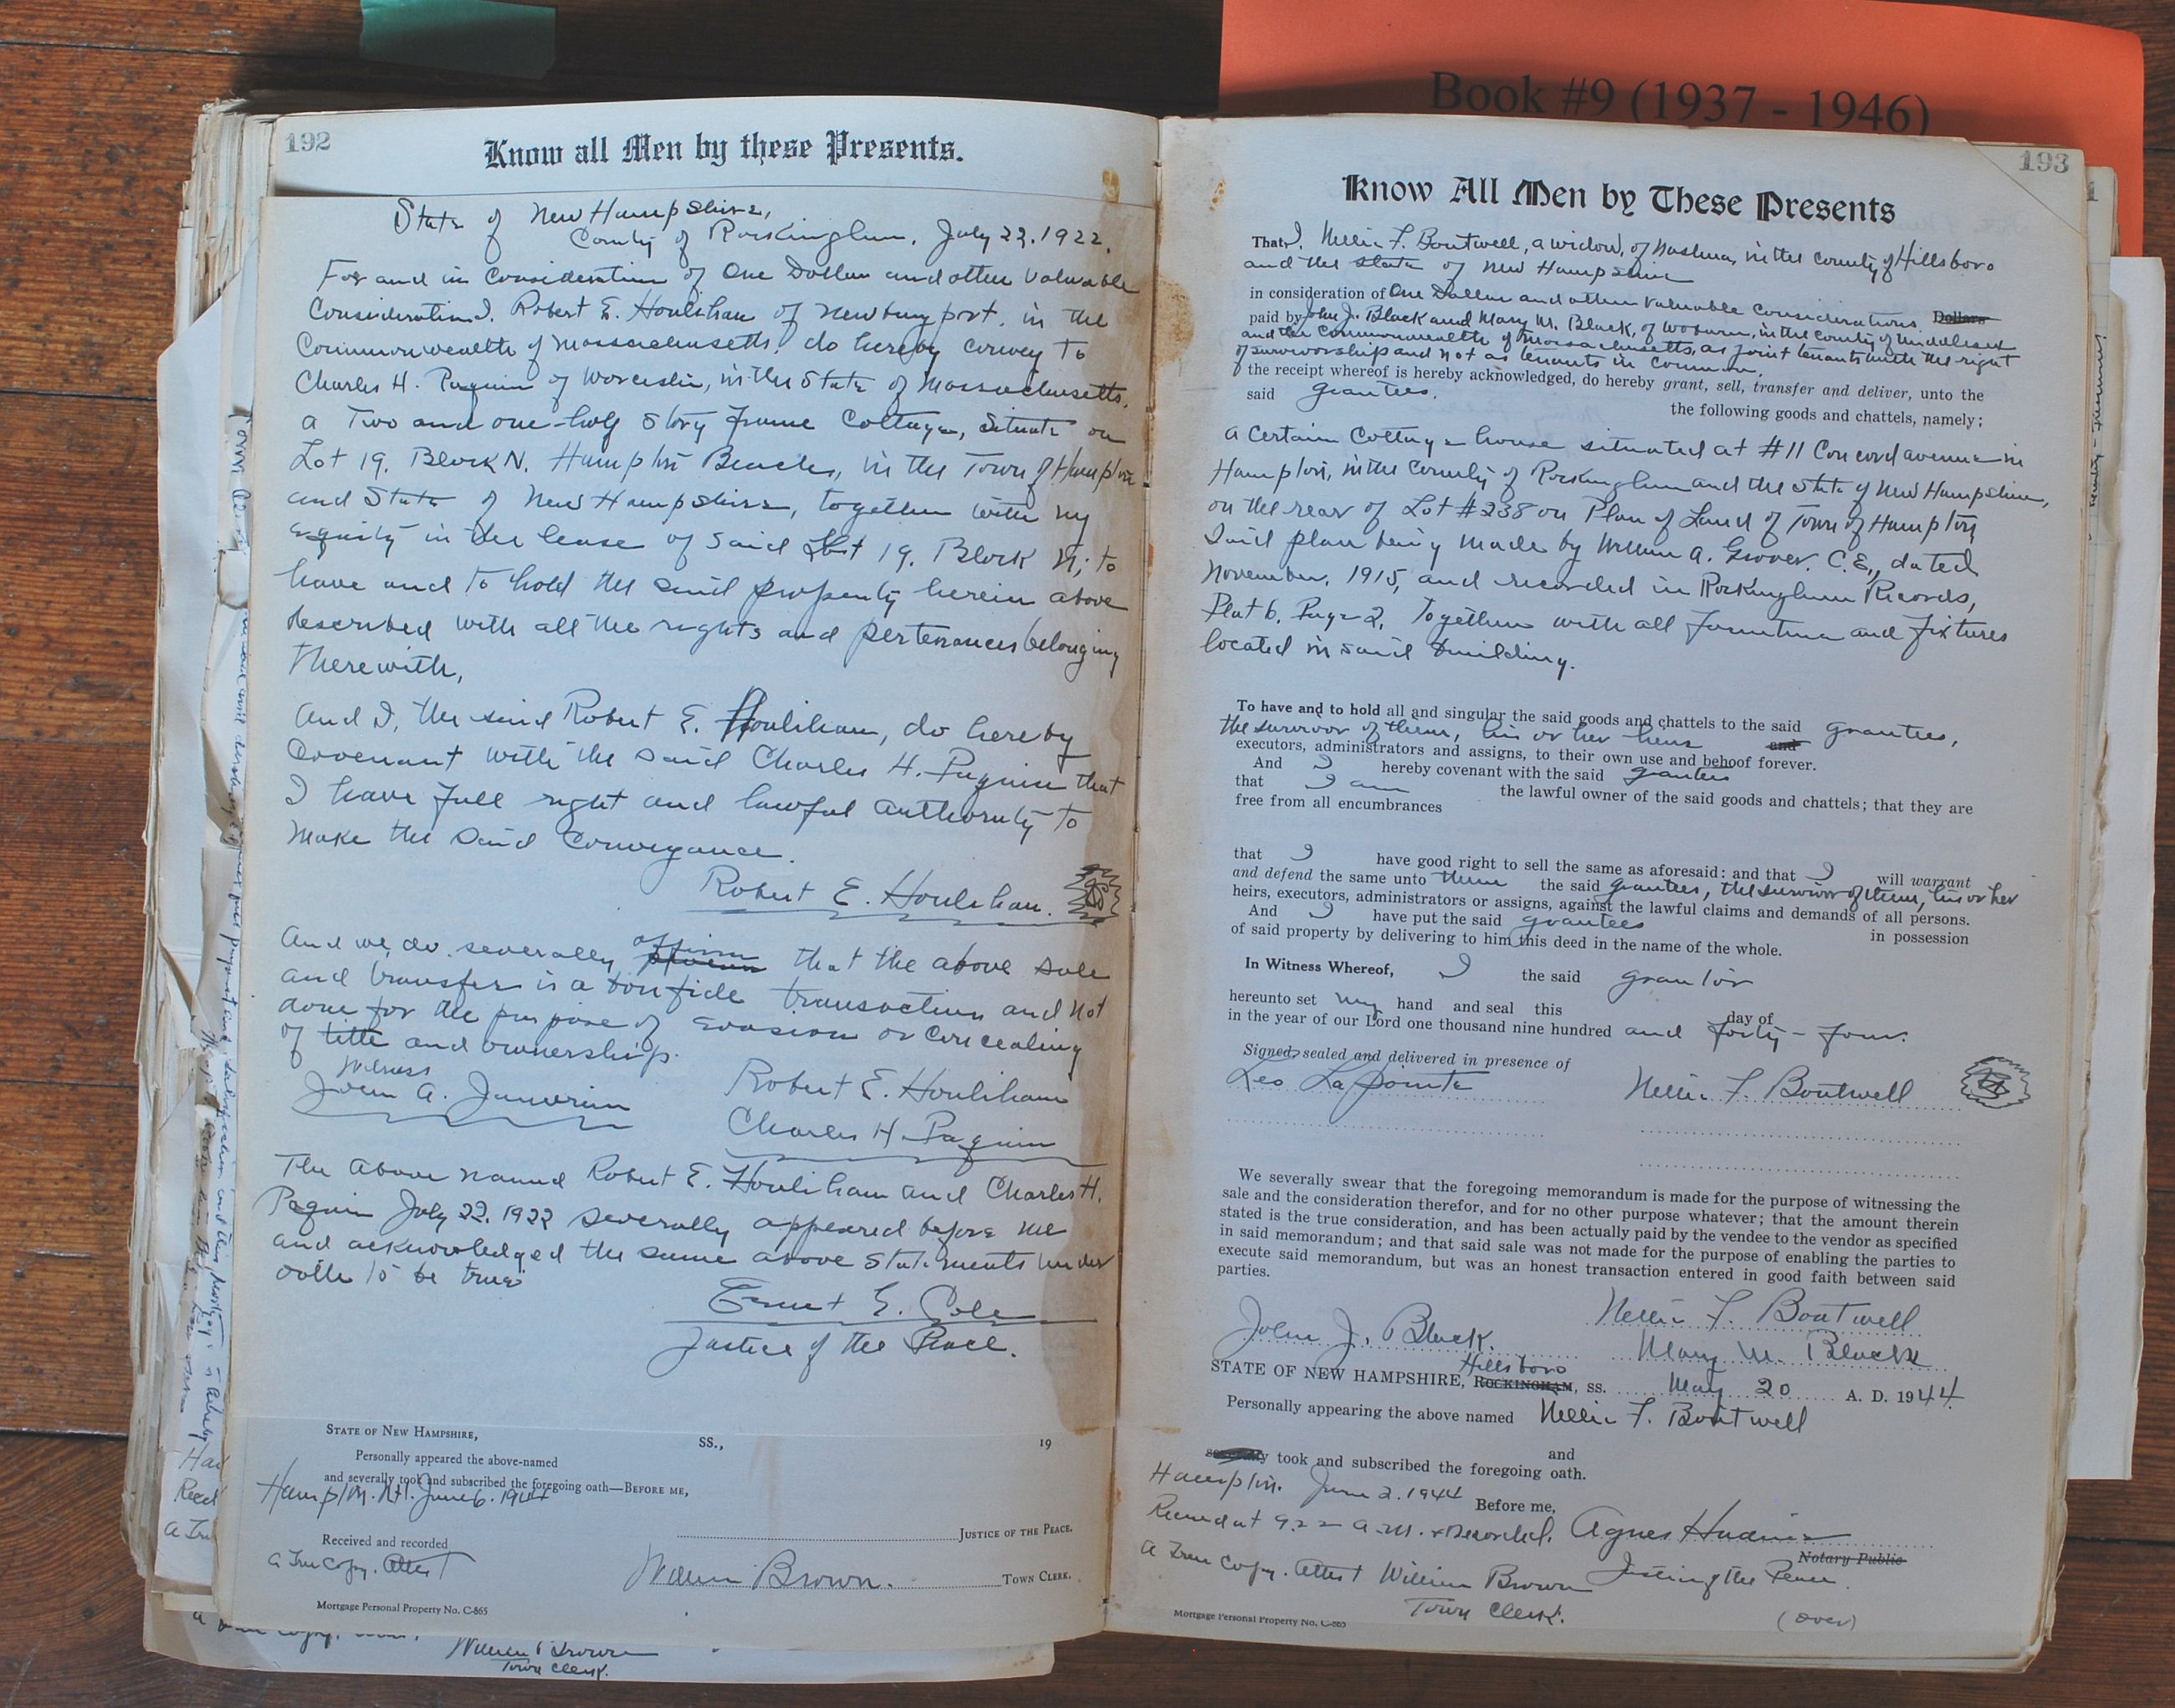 Book #9 (1937 - 1946)
192
Know all Men by these Presents.
State of New Hampshire,
County of Rockingham, July 22, 1922.
For and in consideration of One Dollar and other valuable
Consideration I, Robert E. Houlihan of Newburyport, in the
Commonwealth of Massachusetts, do hereby convey to
Charles H. Paquin of Worcester, in the State of Massachusetts,
a Two and one-half Story frame Cottage, Situate on
Lot 19, Block N. Hampton Beach, in the Town of Hampton
and State of New Hampshire, together with my
equity in the lease of said Lot 19, Block N; to
have and to hold the said property herein above
described with all the rights and pertenances belonging
therewith,
And I, the said Robert E. Houlihan, do hereby
Covenant with the said Charles H. Paquin that
I have full right and lawful authority to
make the said Conveyance.
Robert E. Houlihan.
And we do severally affirm that the above sale
and transfer is a bonfide transaction and not
done for the purpose of evasion or concealing
of title and ownership.
Witness
John A. Janvrin
Robert E. Houlihan
Charles H. Paquin
The above named Robert E. Houlihan and Charles H.
Paquin July 22, 1922 severally appeared before me
and acknowledged the same above statements under
oath to be true
Ernest G. Cole
Justice of the Peace.
STATE OF NEW HAMPSHIRE, SS., 19
Personally appeared the above-named
and severally took and subscribed the foregoing oath—BEFORE ME,
Hampton. N.H. June 6. 1944
JUSTICE OF THE PEACE.
Received and recorded
A True Copy. Attest
William Brown. TOWN CLERK.
Mortgage Personal Property No. C-865
William Brown
Town Clerk.
193
Know All Men by These Presents
That I, Nellie F. Boutwell, a widow, of Nashua, in the County of Hillsboro
and the State of New Hampshire
in consideration of One Dollar and other valuable considerations Dollars
paid by John J. Black and Mary M. Black, of Woburn, in the County of Middlesex
and the Commonwealth of Massachusetts, as joint tenants with the right
of survivorship and not as tenants in common,
the receipt whereof is hereby acknowledged, do hereby grant, sell, transfer and deliver, unto the
said grantees,
the following goods and chattels, namely;
A Certain Cottage house situated at #11 Concord avenue in
Hampton, in the County of Rockingham and the State of New Hampshire,
on the rear of Lot #238 on Plan of Land of Town of Hampton,
Said plan being made by William A. Grover. C.E., dated
November, 1915, and recorded in Rockingham Records,
Plat 6, Page 2, Together with all furniture and fixtures
located in said building.
To have and to hold all and singular the said goods and chattels to the said grantees,
the survivor of them, his or her heirs and
executors, administrators and assigns, to their own use and behoof forever.
And I hereby covenant with the said grantees
that I am the lawful owner of the said goods and chattels; that they are
free from all encumbrances
that I have good right to sell the same as aforesaid: and that I will warrant
and defend the same unto them the said grantees, the survivor of them, his or her
heirs, executors, administrators or assigns, against the lawful claims and demands of all persons.
And I have put the said grantees in possession
of said property by delivering to him this deed in the name of the whole.
In Witness Whereof, I the said grantor
hereunto set my hand and seal this day of
in the year of our Lord one thousand nine hundred and forty-four.
Signed, sealed and delivered in presence of
Leo LaPointe
Nellie F. Boutwell
We severally swear that the foregoing memorandum is made for the purpose of witnessing the
sale and the consideration therefor, and for no other purpose whatever; that the amount therein
stated is the true consideration, and has been actually paid by the vendee to the vendor as specified
in said memorandum; and that said sale was not made for the purpose of enabling the parties to
execute said memorandum, but was an honest transaction entered in good faith between said
parties.
Nellie F. Boutwell
John J. Black.
Mary M. Black
Hillsboro
STATE OF NEW HAMPSHIRE, ROCKINGHAM, SS. May 20 A. D. 1944.
Personally appearing the above named Nellie F. Boutwell
and
severally took and subscribed the foregoing oath.
Hampton. June 2. 1944
Before me,
Received at 9.22 A.M. + Recorded. Agnes
Notary Public
A True Copy. Attest William Brown Justice of the Peace.
Town Clerk.
(over)
Mortgage Personal Property No. C-865